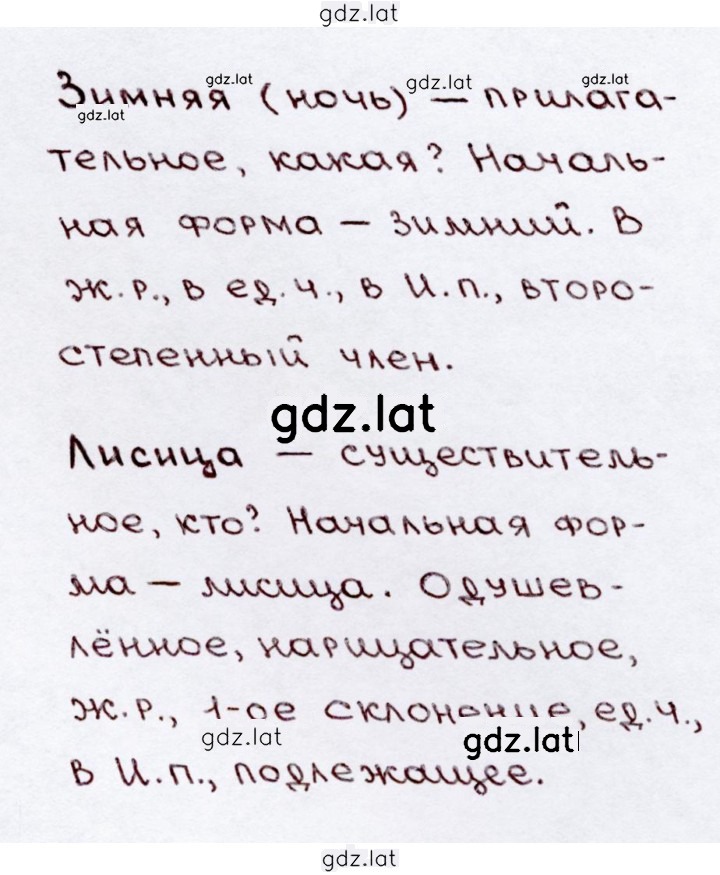 gdz.lat
gdz.lat gdz.lat gdz.lat
Зимняя (ночь) — прилага-
gdz.lat
тельное, какая? Началь-
ная форма — зимний. В
ж.р., в ед.ч., в И.п., второ-
степенный член.
gdz.lat
Лисица — существитель-
ное, кто? Начальная фор-
ма — лисица. Одушев-
лённое, нарицательное,
ж.р., 1-ое склонение, ед.ч.,
gdz.lat gdz.lat
в И.п., подлежащее.
gdz.lat